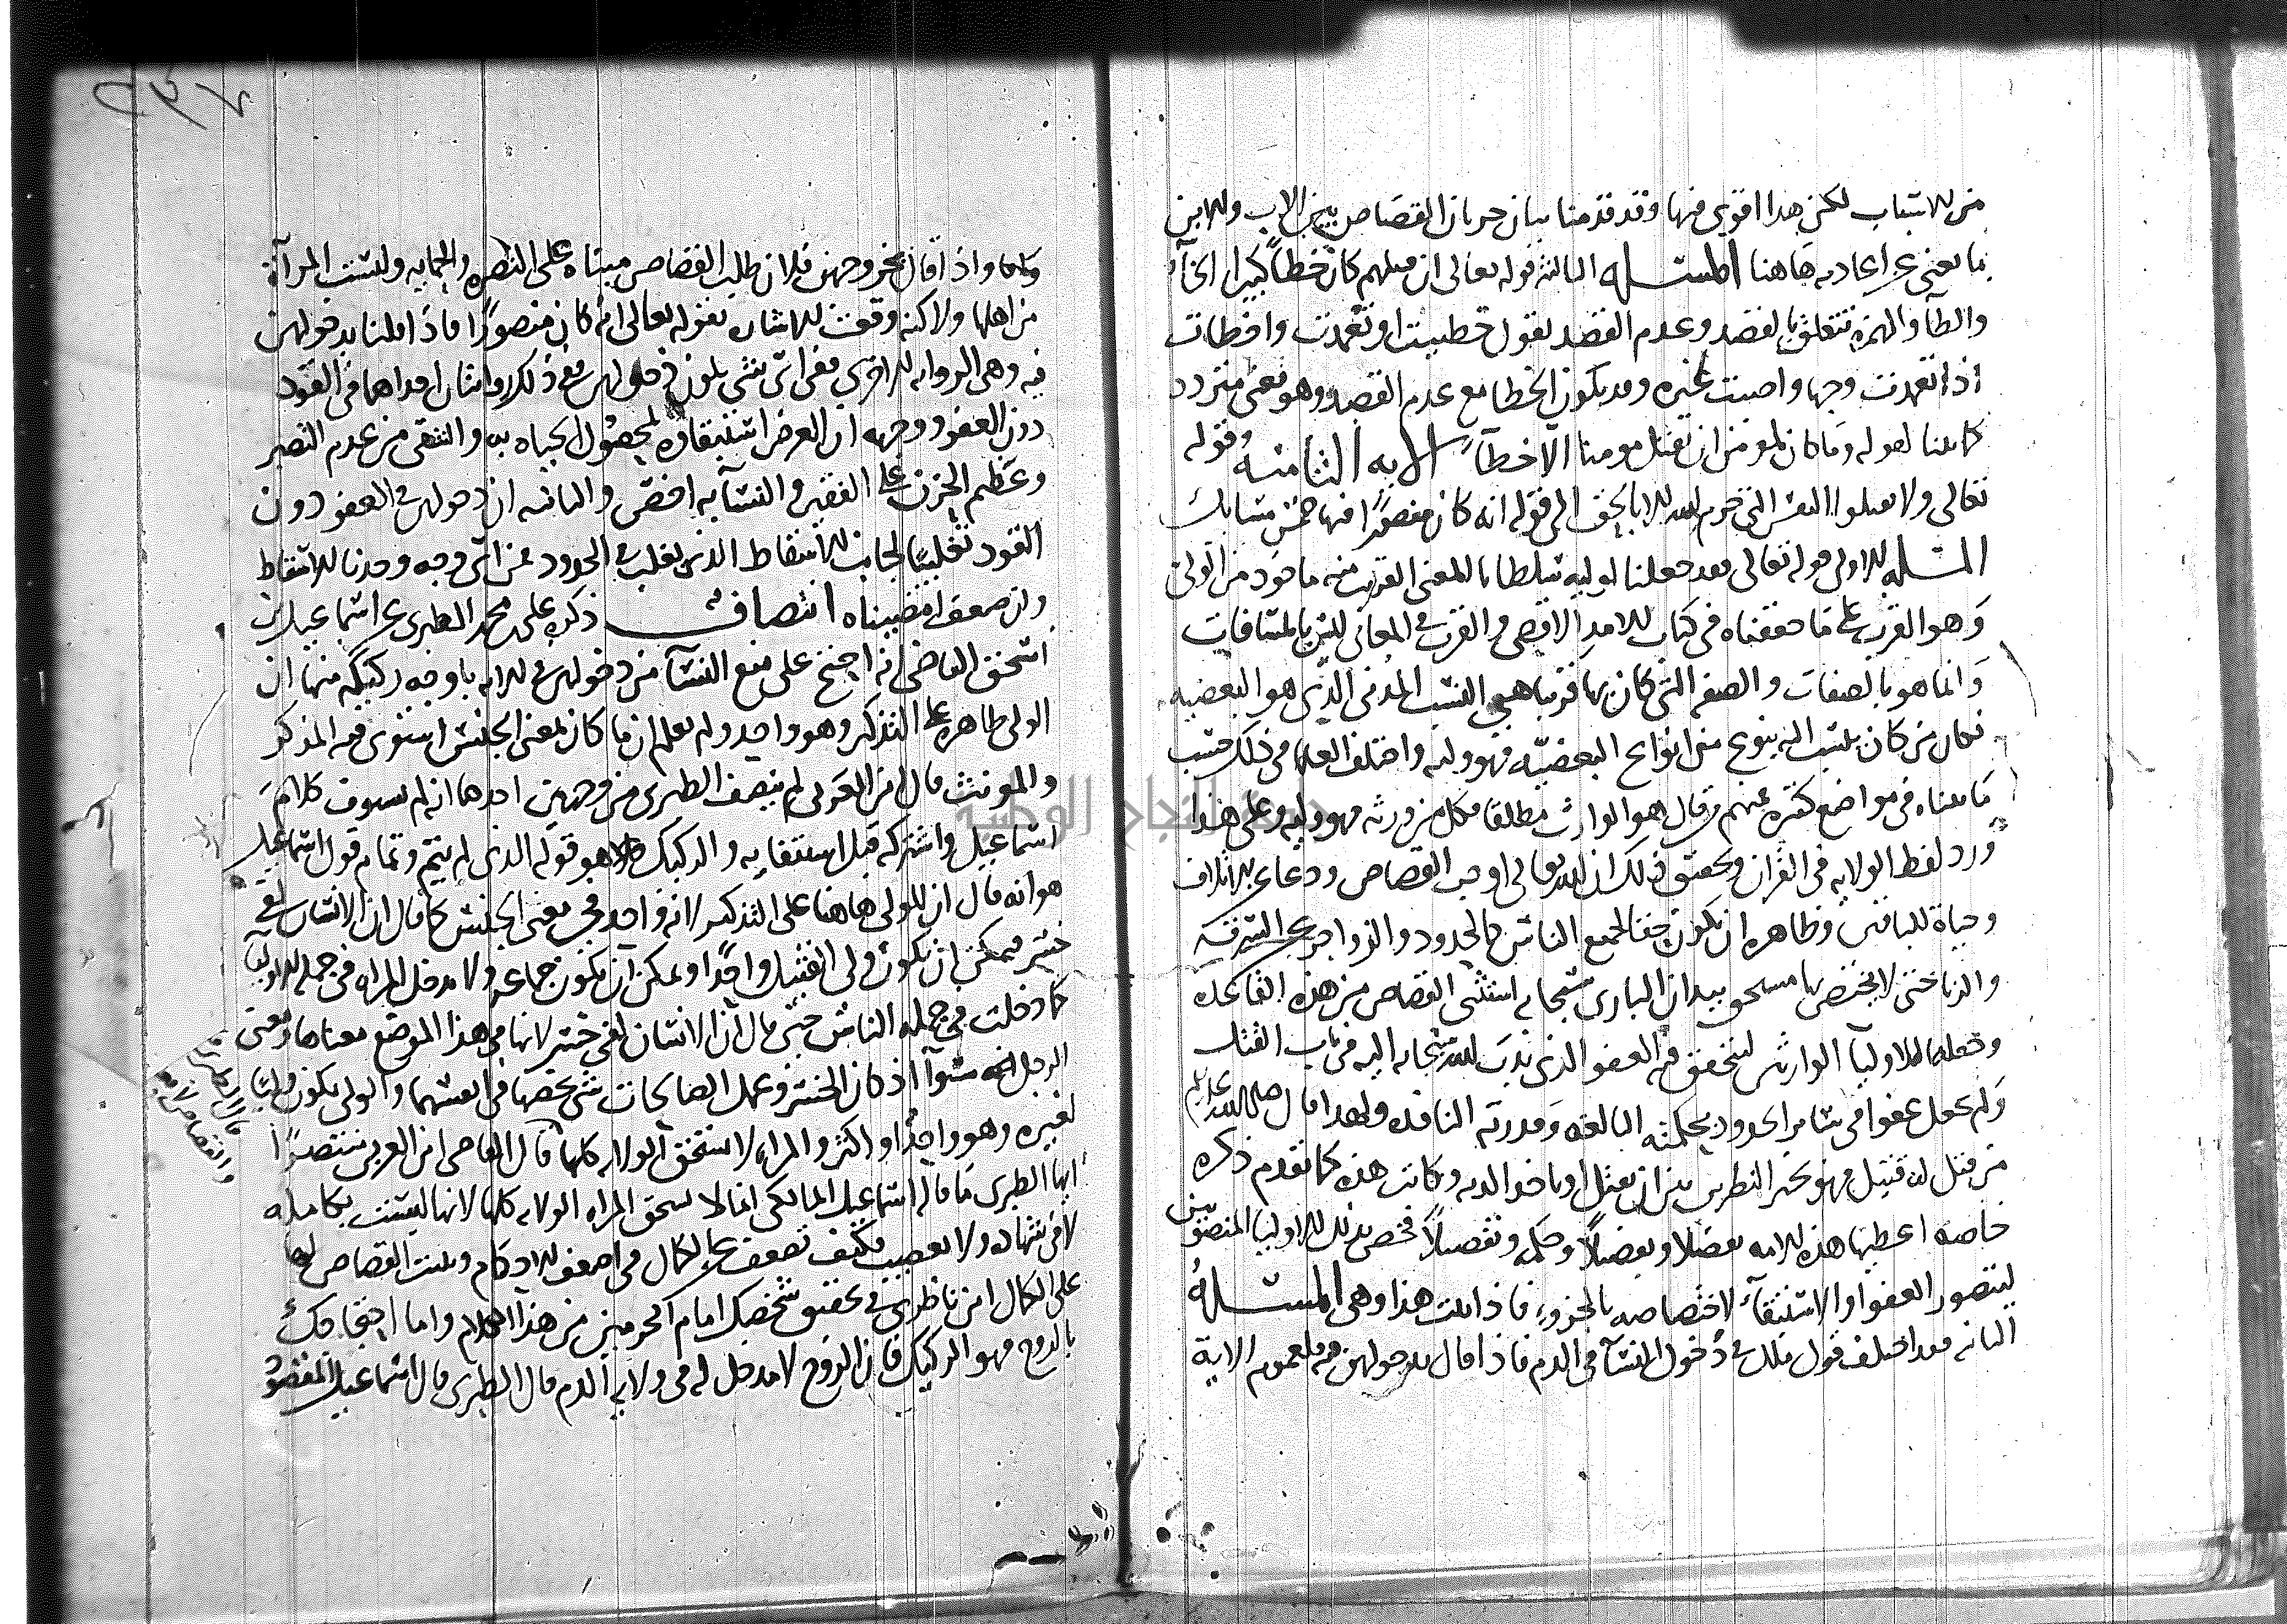 من الاسباب لكن هذا اقوى فيها وقد قدمنا بيان جريان القصاص بين الاب والابن
بما يغني عن اعادته هاهنا المسئلة الثالثة قوله تعالى ان قتلهم كان خطأ كبيرا الخاء
والطاء والهمزة تتعلق بالقصد وعدم القصد يقول خطيت اذا تعمدت واخطات
اذا تعمدت وجها واصبت غيره وقد يكون الخطا مع عدم القصد وهو معنى متردد
كما بينا لقوله وما كان لمومن ان يقتل مومنا الا خطأ الاية الثامنة قوله
تعالى ولا تقتلوا النفس التي حرم الله الا بالحق الى قوله انه كان منصورا فيها خمس مسايل
المسئلة الاولى قوله تعالى فقد جعلنا لوليه سلطانا المعنى القريب منه ماخوذ من الولي
وهو القرب على ما حققناه في كتاب الامد الاقصى والقرب في المعاني ليس بالمسافات
وانما هو بالصفات والصفة التي كان بها قريبا هي النسب المدني الذي هو البعضية
فكان من كان ينسب اليه بنوع من انواع البعضية فهو وليه واختلف العلماء في ذلك حسب
ما بيناه في مواضع كثيرة منهم من قال هو الوارث مطلقا فكل من ورثه فهو وليه وعلى هذا
ورد لفظ الولاية في القران وتحقيق ذلك ان الله تعالى اوجب القصاص ردعا عن الاتلاف
وحياة للباقين وظاهره ان يكون حقا لجميع الناس كالحدود والزواجر عن السرقة
والزنا حتى لا يختص بها مستحق بيد ان الباري سبحانه استثنى القصاص من هذه القاعدة
وجعله للاوليا الوارثين ليتحقق فيه العفو الذي ندب الله سبحانه اليه في باب القتل
ولم يجعل عفوا في ساير الحدود بحكمته البالغة وقدرته النافذة ولهذا قال صلى الله عليه وسلم
من قتل له قتيل فهو بخير النظرين بين ان يقتل او ياخذ الدية وكانت هذه كما تقدم ذكره
خاصة اعطيها هذه الامة تفضلا وتفضيلا وحكمة وتفصيلا فخص بذلك الاوليا المتصورين
ليتصور العفو او الاستيفاء لاختصاصه بالحزن فاذا ثبت هذا وهي المسئلة
الثانية فقد اختلف قول ملك في دخول النسا في الدم فاذا قال بدخولهن فيه فلعموم الاية
وكما واذا قال بخروجهن فلان طلب القصاص مبناه على النصرة والحماية وليست المراة
من اهلها ولاكنه وقعت الاشارة بقوله تعالى انه كان منصورا فاذا قلنا بدخولهن
فيه وهي الرواية الاخرى ففي اي شي يكون دخولهن في ذلك روايتان احداهما في القود
دون العفو ووجهه ان الغرض استيفاوه لحصول الحياة به والتشفي من عدم النصير
وعظم الحزن على الفقيد والنساء به اخص والثانية ان دخولهن في العفو دون
القود تغليبا لجانب الاسقاط الذي يغلب في الحدود فمن اي وجه وجدنا الاسقاط
وان ضعف امضيناه انتصاف ذكر علي بن محمد الطبري عن اسماعيل بن
اسحق القاضي انه احتج على منع النساء من دخولهن في الاية باوجه ركيكة منها ان
الولي ظاهره على التذكير وهو واحد ولم يعلم ان ما كان بمعنى الجنس استوى فيه المذكر
والمونث قال ابن العربي لم ينصف الطبري من وجهين احدهما انه لم يستوف كلام
اسماعيل واستركه قبل استيفايه والركيك هو قوله الذي لم يتم وتمام قول اسماعيل
هو انه قال ان الولي هاهنا على التذكير لانه واحد في معنى الجنس كما قال ان الانسان لفي
خسر فيمكن ان يكون ولي القتيل واحدا ويمكن ان يكون جماعة ولا تدخل المراة في جملة الاوليا
كما دخلت في جملة الناس حين قال ان الانسان لفي خسر لانها في هذا الموضع معناها ومعنى
الرجل سواء اذ كان الخسر وعمل الصالحات شي يخصها في انفسهما والولي يكون وليا
لغيره وهو واحد او اكثر والمراة لا تستحق الولاية كلها قال القاضي ابن العربي منتصرا
ايها الطبري ما قاله اسماعيل المالكي انما لا تستحق المراة الولاية كلها لانها ليست بكاملة
لا في شهادة ولا تعصيب فكيف تضعف عن الكمال في اضعف الاحكام ويثبت القصاص لها
على الكمال اين ناظرك في تحقيق شخصك امام الحرمين من هذا الكلام واما احتجاجك
بالزوج فهو الركيك فان الزوج لا مدخل له في ولاية الدم قال الطبري قال اسماعيل المقصود